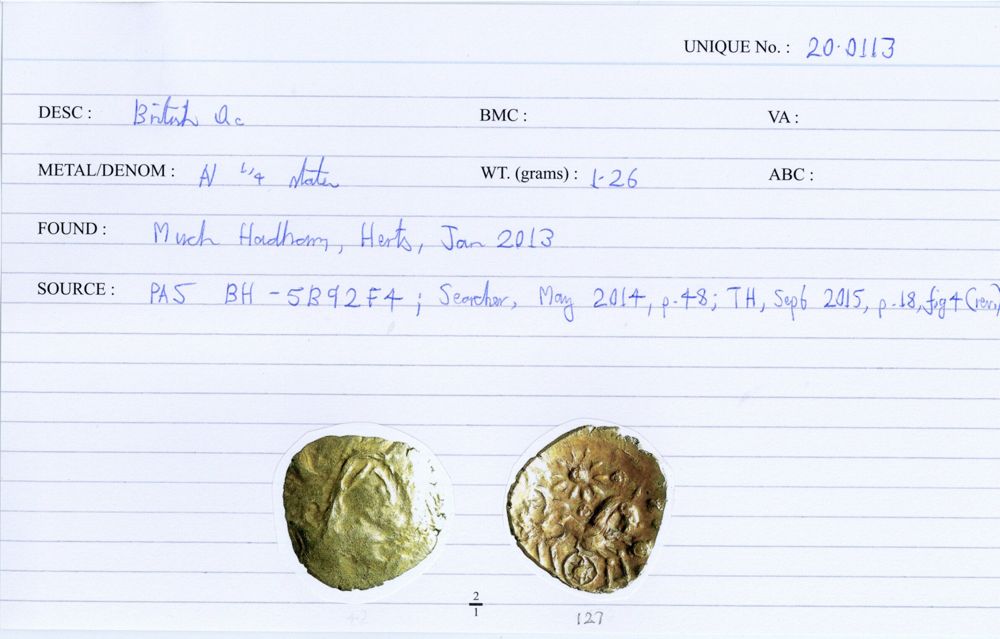 UNIQUE No. : 20·0113
DESC : British Qc BMC : VA :
METAL/DENOM : AV 1/4 stater WT. (grams) : 1·26 ABC :
FOUND : Much Hadham, Herts, Jan 2013
SOURCE : PAS BH - 5B92F4 ; Searcher, May 2014, p.48; TH, Sept 2015, p.18, fig 4 (rev.)
2
1
127